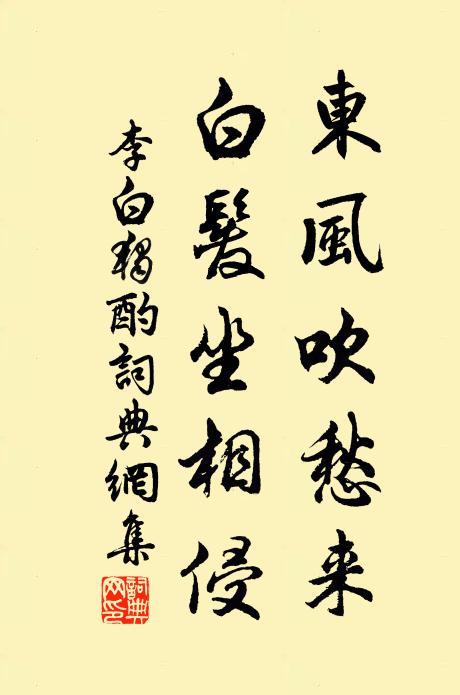 東風吹愁来
白髮坐相侵
李白獨酌詞典網集
詞典網印